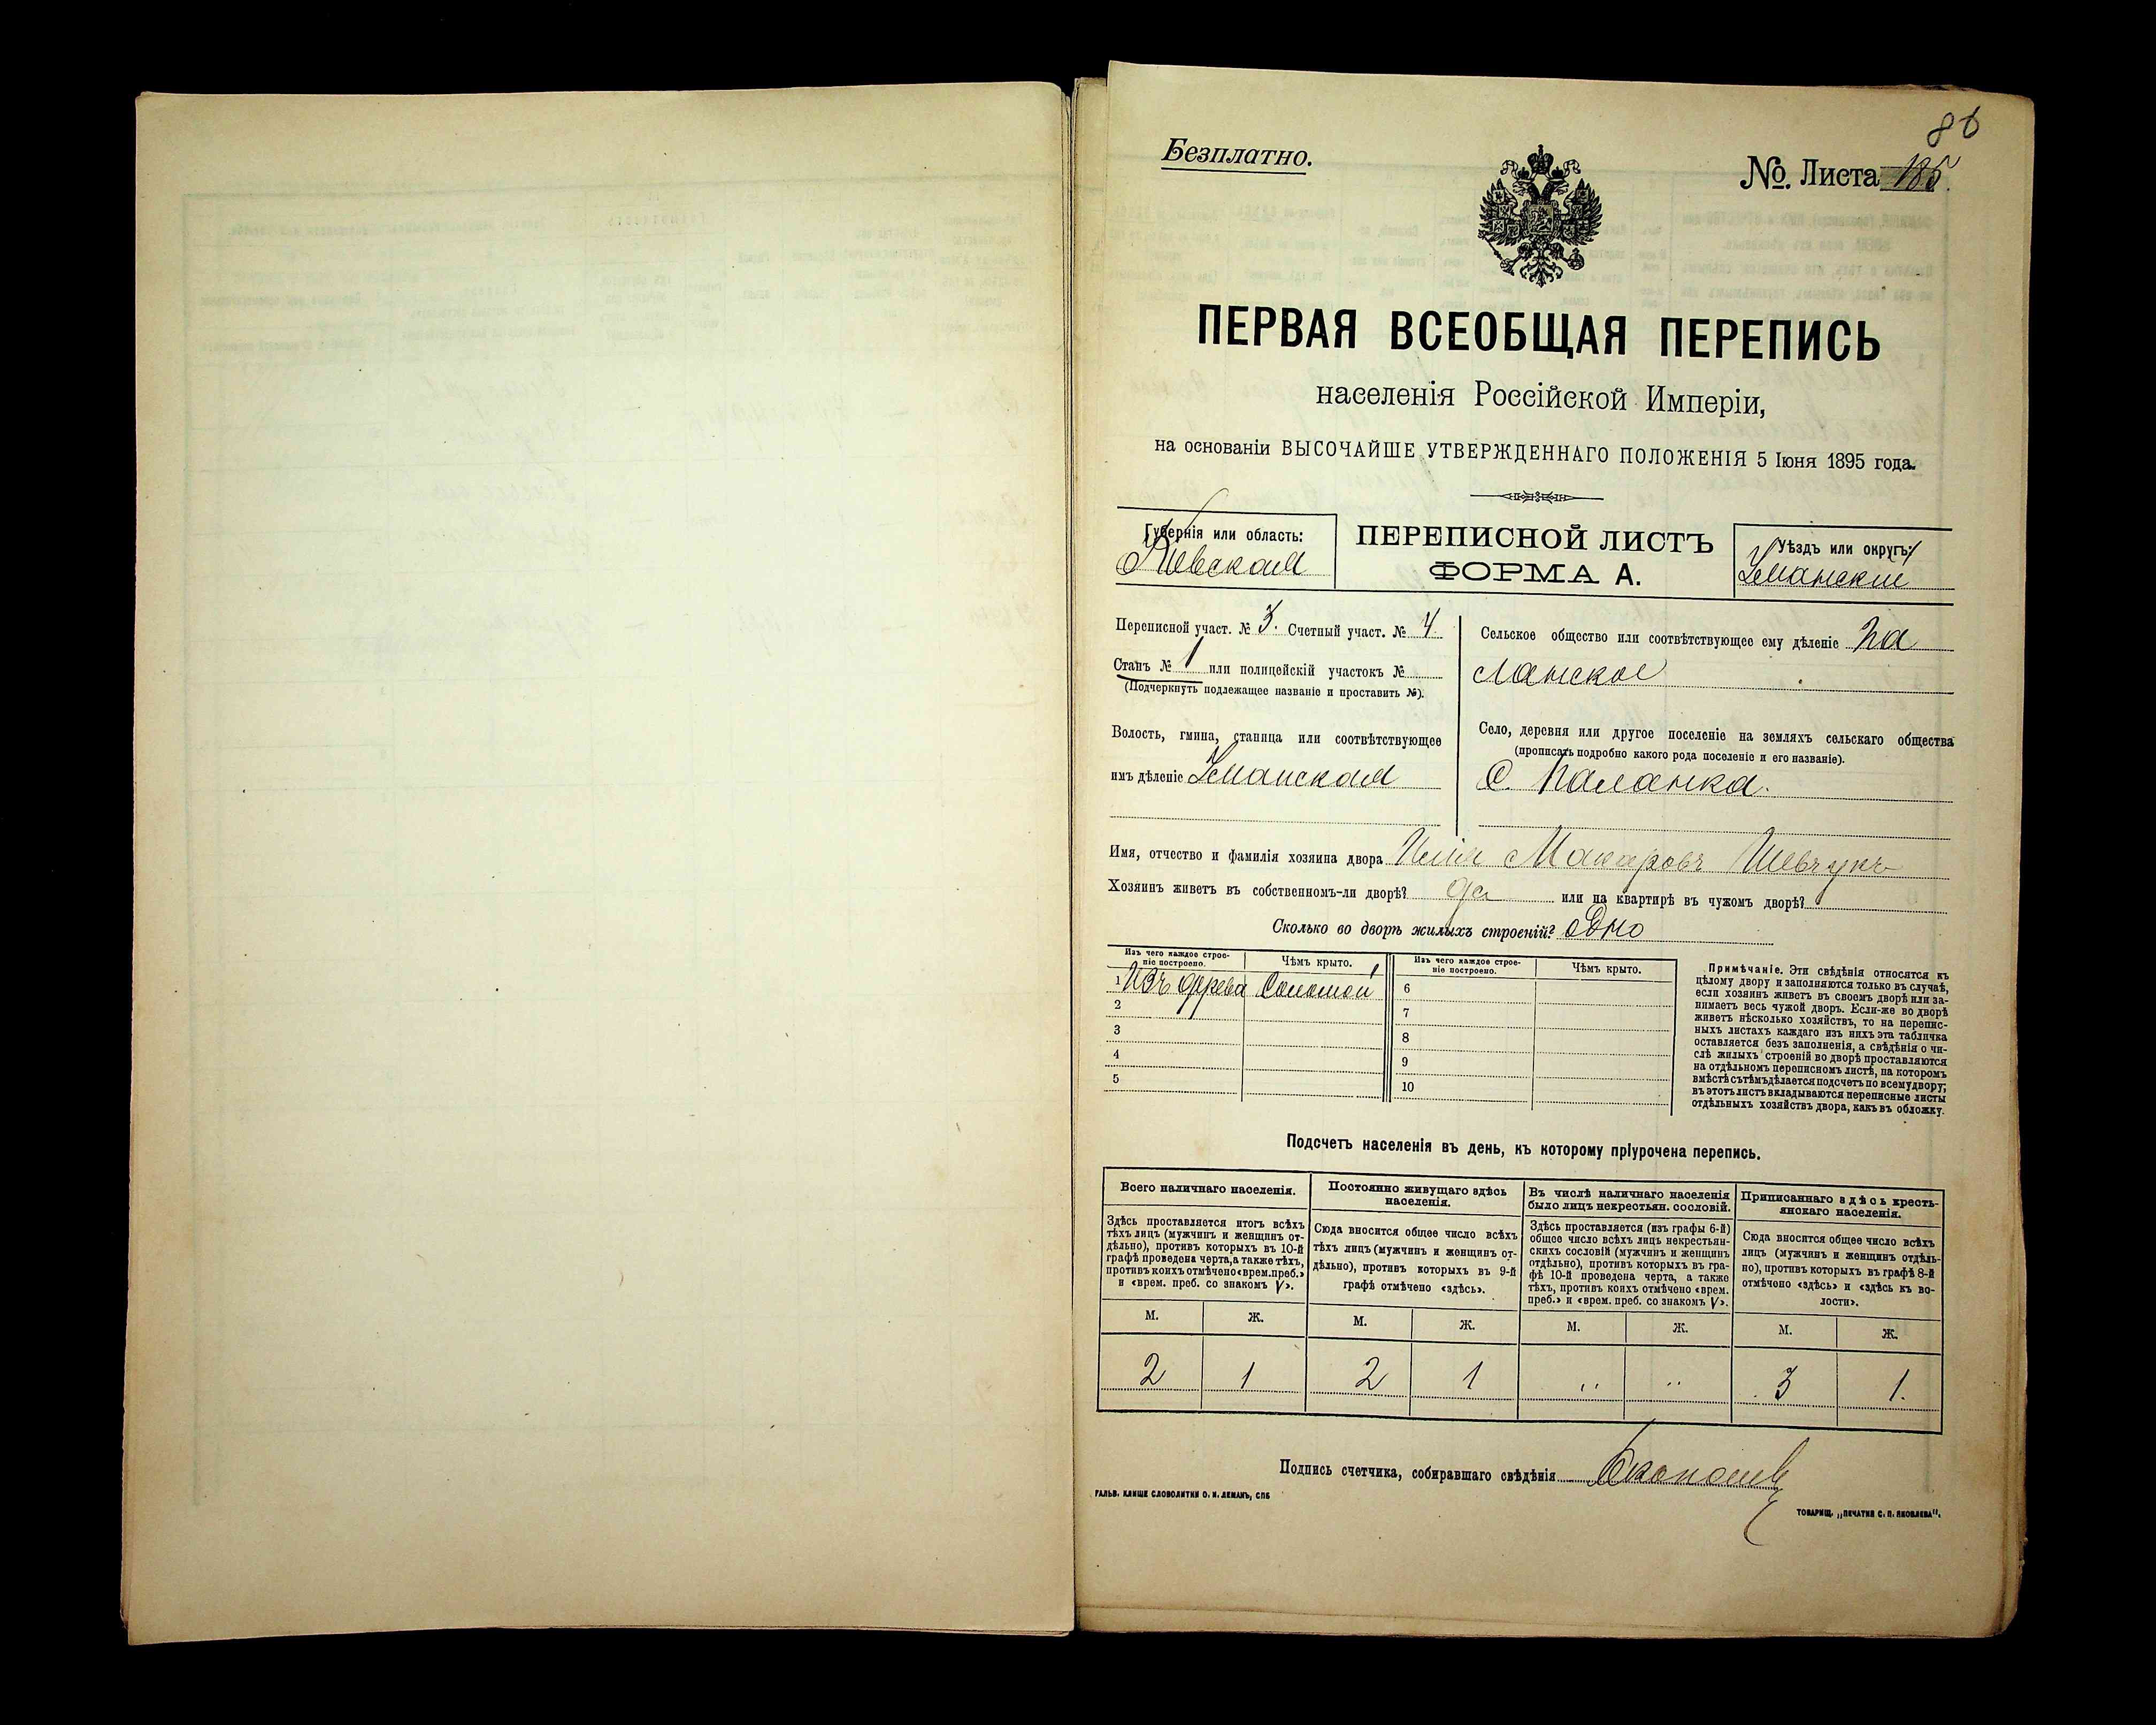 86
Безплатно.
№. Листа 185.
ПЕРВАЯ ВСЕОБЩАЯ ПЕРЕПИСЬ
населенія Россійской Имперіи,
на основаніи ВЫСОЧАЙШЕ УТВЕРЖДЕННАГО ПОЛОЖЕНІЯ 5 Іюня 1895 года.
Губернія или область:
Кіевская
ПЕРЕПИСНОЙ ЛИСТЪ
ФОРМА А.
Уѣздъ или округъ:
Уманскій
Переписной участ. № 3. Счетный участ. № 4.
Станъ № 1 или полицейскій участокъ №
(Подчеркнуть подлежащее названіе и проставить №).
Волость, гмина, станица или соотвѣтствующее
имъ дѣленіе Уманская
Сельское общество или соотвѣтствующее ему дѣленіе Па
ланское
Село, деревня или другое поселеніе на земляхъ сельскаго общества
(прописать подробно какого рода поселеніе и его названіе).
С. Паланка.
Имя, отчество и фамилія хозяина двора Илія Макаровъ Шевчукъ
Хозяинъ живетъ въ собственномъ-ли дворѣ? да или на квартирѣ въ чужомъ дворѣ?
Сколько во дворѣ жилыхъ строеній? одно
Изъ чего каждое строе-
ніе построено.
Чѣмъ крыто.
Изъ чего каждое строе-
ніе построено.
Чѣмъ крыто.
1 Изъ дерева Соломой
2
3
4
5
6
7
8
9
10
Примѣчаніе. Эти свѣдѣнія относятся къ
цѣлому двору и заполняются только въ случаѣ,
если хозяинъ живетъ въ своемъ дворѣ или за-
нимаетъ весь чужой дворъ. Если-же во дворѣ
живетъ нѣсколько хозяйствъ, то на перепис-
ныхъ листахъ каждаго изъ нихъ эта табличка
оставляется безъ заполненія, а свѣдѣнія о чи-
слѣ жилыхъ строеній во дворѣ проставляются
на отдѣльномъ переписномъ листѣ, на которомъ
вмѣстѣ съ тѣмъ дѣлается подсчетъ по всему двору;
въ этотъ листъ вкладываются переписные листы
отдѣльныхъ хозяйствъ двора, какъ въ обложку.
Подсчетъ населенія въ день, къ которому пріурочена перепись.
Всего наличнаго населенія.
Здѣсь проставляется итогъ всѣхъ
тѣхъ лицъ (мужчинъ и женщинъ от-
дѣльно), противъ которыхъ въ 10-й
графѣ проведена черта, а также тѣхъ,
противъ коихъ отмѣчено «врем. преб.»
и «врем. преб. со знакомъ V».
Постоянно живущаго здѣсь
населенія.
Сюда вносится общее число всѣхъ
тѣхъ лицъ (мужчинъ и женщинъ от-
дѣльно), противъ которыхъ въ 9-й
графѣ отмѣчено «здѣсь».
Въ числѣ наличнаго населенія
было лицъ некрестьян. сословій.
Здѣсь проставляется (изъ графы 6-й)
общее число всѣхъ лицъ некрестьян-
скихъ сословій (мужчинъ и женщинъ
отдѣльно), противъ которыхъ въ гра-
фѣ 10-й проведена черта, а также
тѣхъ, противъ коихъ отмѣчено «врем.
преб.» и «врем. преб. со знакомъ V».
Приписаннаго здѣсь кресть-
янскаго населенія.
Сюда вносится общее число всѣхъ
лицъ (мужчинъ и женщинъ отдѣль-
но), противъ которыхъ въ графѣ 8-й
отмѣчено «здѣсь» и «здѣсь къ во-
лости».
М. Ж. М. Ж. М. Ж. М. Ж.
2 1 2 1 „ „ 3 1.
Подпись счетчика, собиравшаго свѣдѣнія
ГАЛЬВ. КЛИШЕ СЛОВОЛИТНИ О. И. ЛЕМАНЪ, СПБ
ТОВАРИЩ. „ПЕЧАТНЯ С. П. ЯКОВЛЕВА".